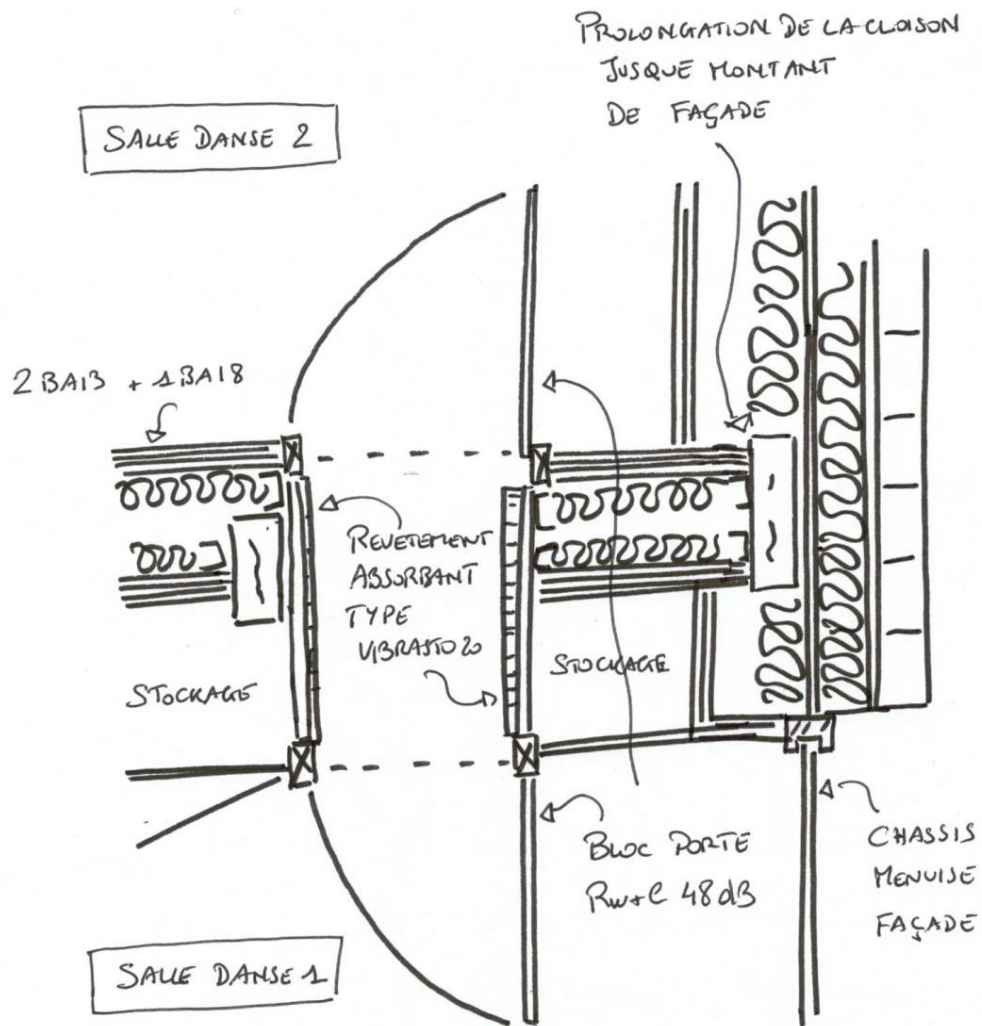 PROLONGATION DE LA CLOISON
JUSQUE MONTANT
DE FAÇADE
SALLE DANSE 2
2 BA13 + 1 BA18
REVETEMENT
ABSORBANT
TYPE
VIBRASTO 20
STOCKAGE
STOCKAGE
BLOC PORTE
Rw+C 48 dB
CHASSIS
MENUISE
FAÇADE
SALLE DANSE 1